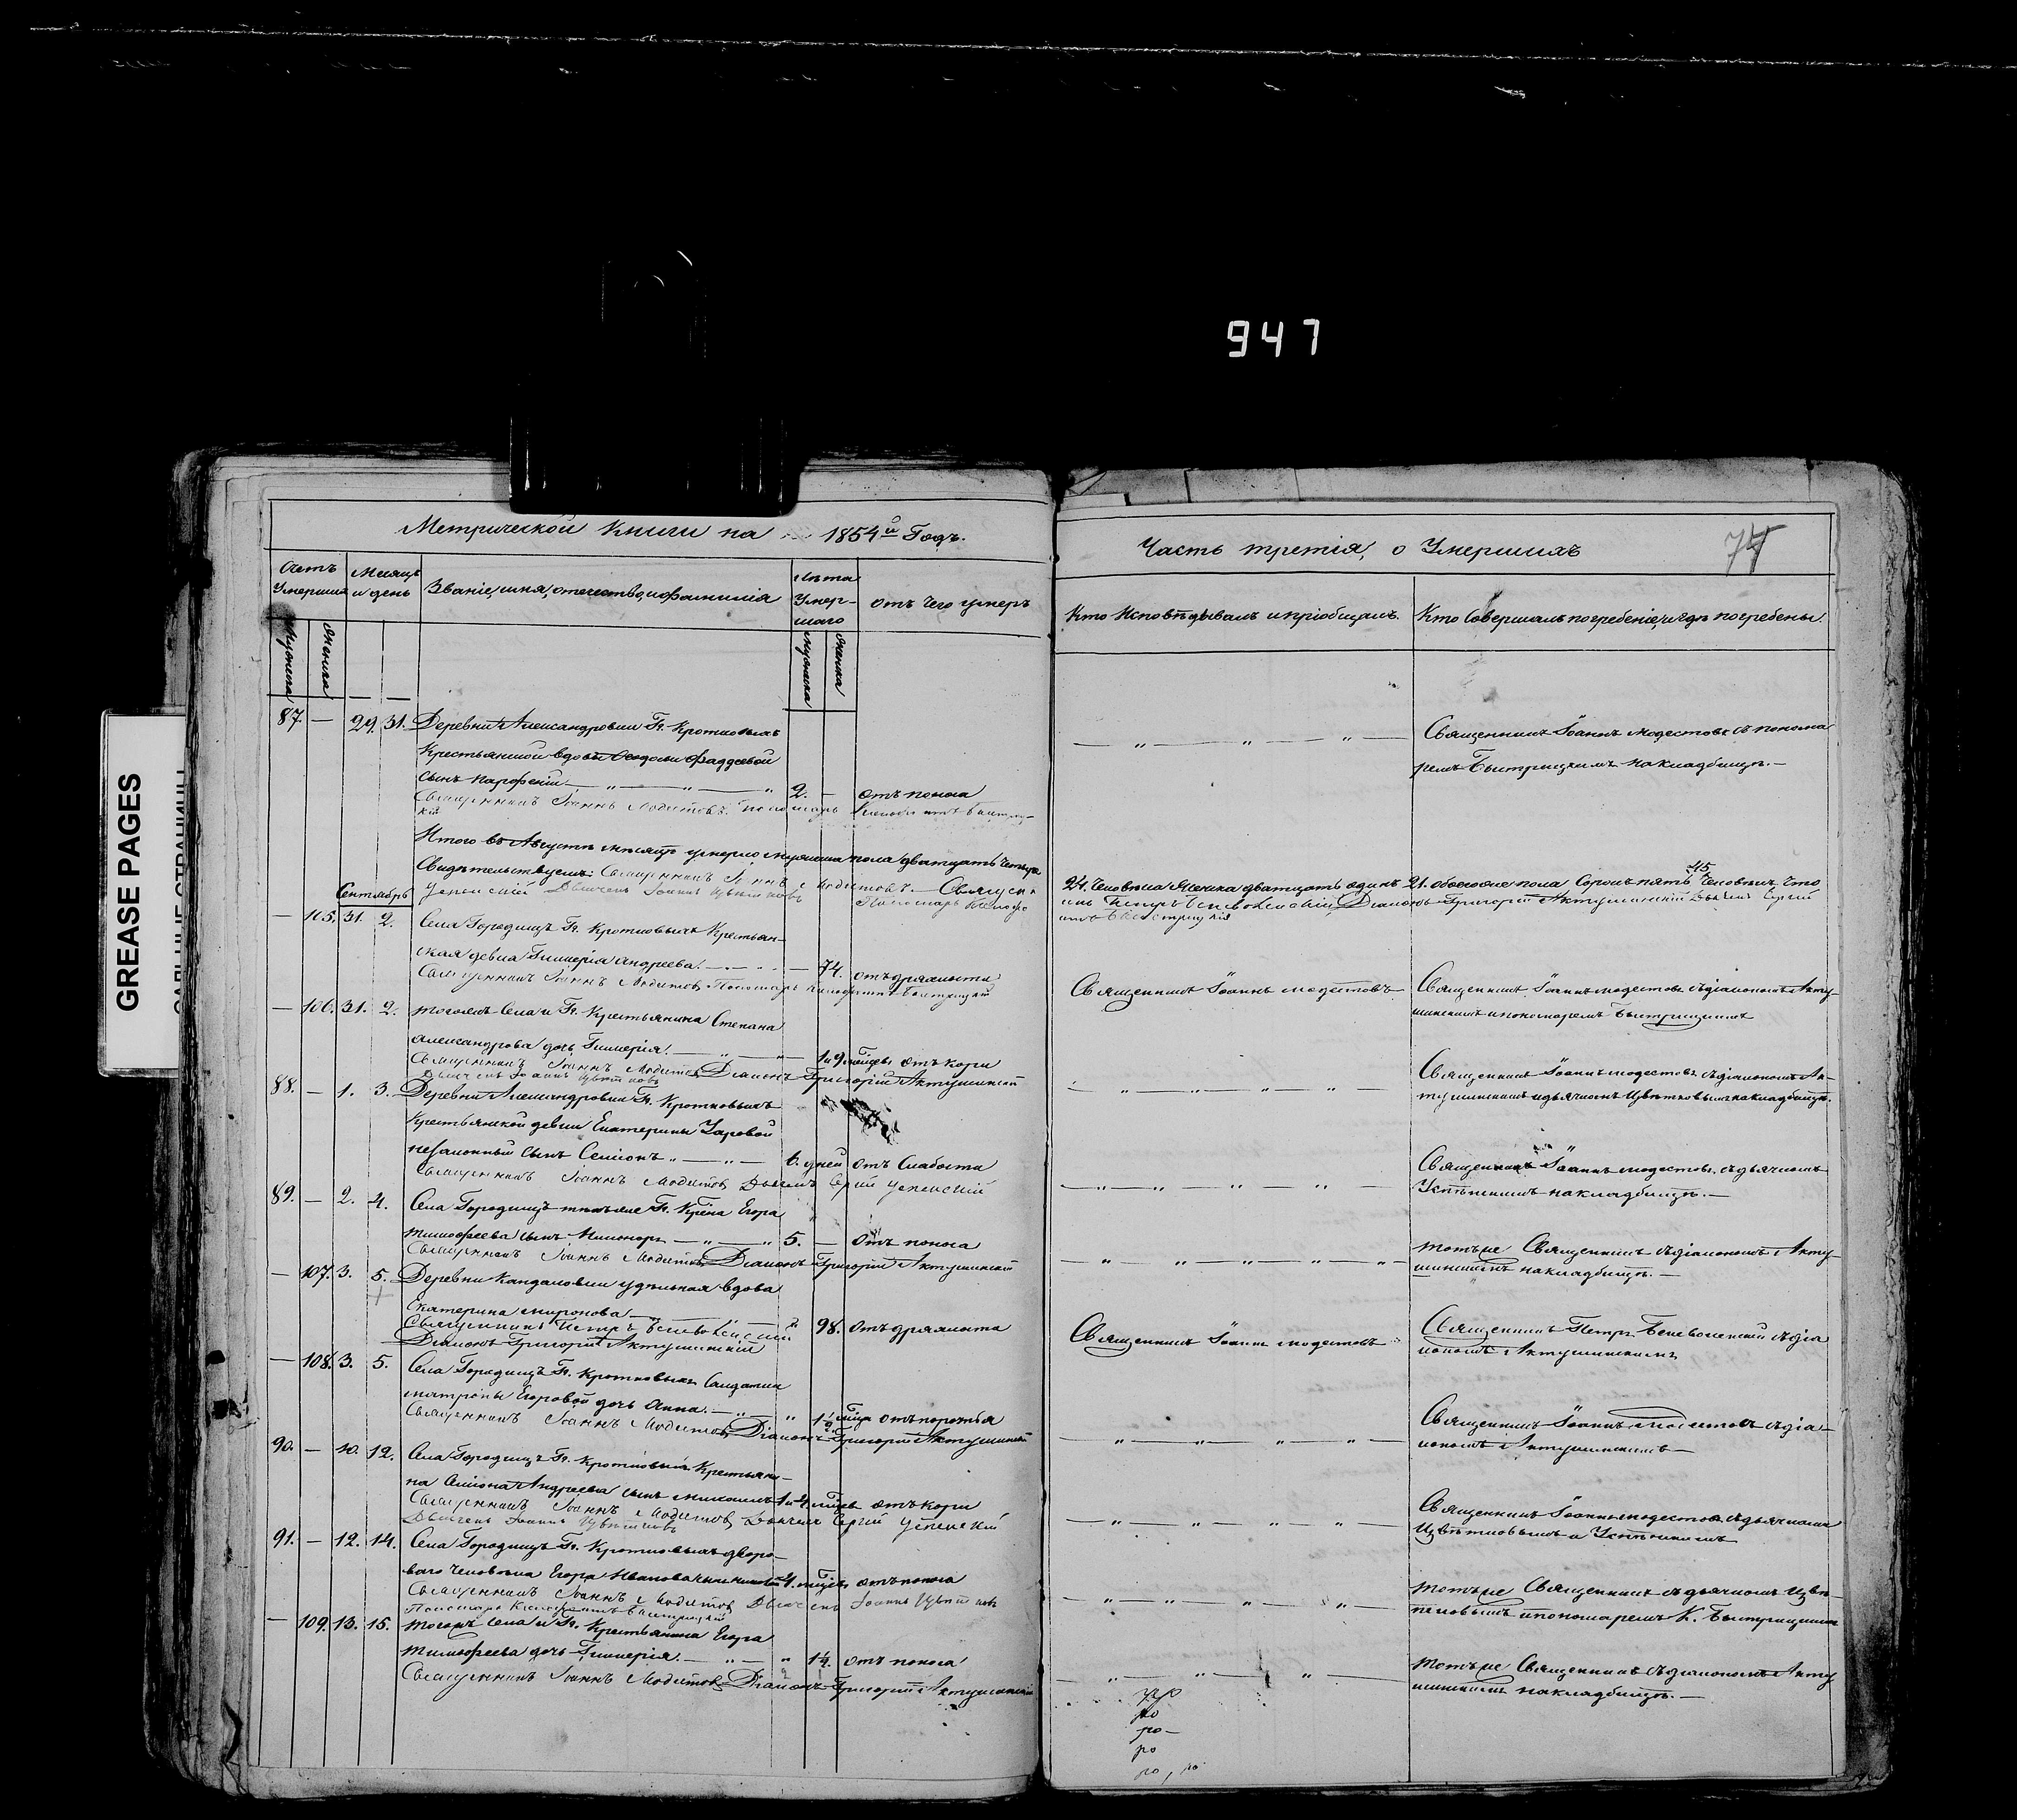 947
GREASE PAGES
Метрической книги на 1854й Годъ.
Счетъ Умершихъ
Месяцъ и день
Званіе, имя, отечество, и фамилія
Лѣта Умер-
шаго
отъ Чего умеръ
мужеска
женска
мужеска
женска
87. — 29. 31. Деревни Александровки Гг. Кротковыхъ
Крестьянской вдовы Ѳедосьи Фаддеевой
сынъ Парфеній — „ — „ — „ 2. — отъ поноса
Священникъ Іоаннъ Модестовъ. Пономарь
Итого въ Августѣ мѣсяцѣ умерло мужеска пола двадцать четыре
Свидѣтельствуемъ: Священникъ Іоаннъ Модестовъ. Священ
Успенскій Дьячекъ Іоаннъ Цвѣтковъ Пономарь
Сентябрь
— 105. 31. 2. Села Городищъ Гг. Кротковыхъ Крестьян-
ская девка Гликерія Андреева. — 74. отъ дряхлости
Священникъ Іоаннъ Модестовъ Пономарь Быстрицкій
— 106. 31. 2. тогожъ Села и Гг. Крестьянина Степана
Александрова дочь Гликерія. — „ — 1 и 9 мѣсяцевъ отъ кори
Священникъ Іоаннъ Модестовъ Діаконъ Григорій Актушинскій
Дьячекъ Іоаннъ Цвѣтковъ
88. — 1. 3. Деревни Александровки Гг. Кротковыхъ
Крестьянской девки Екатерины Уаровой
незаконный сынъ Симіонъ „ — „ — 6. дней отъ слабости
Священникъ Іоаннъ Модестовъ Дьячекъ Сергій Успенскій
89. — 2. 4. Села Городищъ тѣхъ же Гг. Кр—на Егора
Тимофеева сынъ Никонор — „ — „ 5. — отъ поноса
Священникъ Іоаннъ Модестовъ Діаконъ Григорій Актушинскій
— 107. 3. 5. Деревни Кандаловки удѣльная вдова
Екатерина Миронова — 98. отъ дряхлости
Священникъ Петръ Беневоленскій
Діаконъ Григорій Актушинскій
— 108. 3. 5. Села Городищъ Гг. Кротковыхъ Солдатки
Матроны Егоровой дочь Анна. — „ — „ 1½ отъ
Священникъ Іоаннъ Модестовъ Діаконъ Григорій Актушинскій
90. — 10. 12. Села Городищъ Гг. Кротковыхъ Крестьяни-
на Симіона Андреева сынъ 1 и 4. отъ кори
Священникъ Іоаннъ Модестовъ Дьячекъ Сергій Успенскій
Дьячекъ Іоаннъ Цвѣтковъ
91. — 12. 14. Села Городищъ Гг. Кротковыхъ дворо-
ваго человѣка Егора Иванова сынъ 4. отъ поноса
Священникъ Іоаннъ Модестовъ Дьячекъ Іоаннъ Цвѣтковъ
Пономарь Быстрицкій
— 109. 13. 15. тогожъ Села и Гг. Крестьянина Егора
Тимофеева дочь Гликерія. — „ — „ 1½. отъ поноса
Священникъ Іоаннъ Модестовъ Діаконъ Григорій Актушинскій
Часть третія, о Умершихъ
77
Кто Исповѣдывалъ и пріобщалъ.
Кто Совершалъ погребеніе, и гдѣ погребены.
— „ — „ — „ — Священникъ Іоаннъ Модестовъ съ понома
ремъ Быстрицкимъ на кладбищѣ. —
45.
24. Человѣка Женска двадцать одинъ 21. обоего пола Сорокъ пять Человѣкъ Что
икъ Петръ Беневоленскій, Діаконъ Григорій Актушинскій Дьячекъ Сергій
Быстрицкій
Священникъ Іоаннъ Модестовъ
Священникъ Іоаннъ Модестовъ съ діакономъ Акту-
шинскимъ и пономаремъ Быстрицкимъ
— „ — „ — „ — „ Священникъ Іоаннъ Модестовъ съ діакономъ Ак-
тушинскимъ и дьячкомъ Цвѣтковымъ на кладбищѣ.
— „ — „ — „ — „ — Священникъ Іоаннъ Модестовъ, съ дьячкомъ
Успѣнскимъ на кладбищѣ. —
— „ — „ — „ — „ — „ — тотъ же Священникъ съ діакономъ Акту-
шинскимъ на кладбищѣ. —
Священникъ Іоаннъ Модестовъ
Священникъ Петръ Беневоленскій съ діа
кономъ Актушинскимъ
— „ — „ — „ — „ — Священникъ Іоаннъ Модестовъ съ діа-
кономъ Актушинскимъ —
— „ — „ — „ — „ — Священникъ Іоаннъ Модестовъ съ дьячками
Цвѣтковымъ и Успѣнскимъ
— „ — „ — „ — „ — тотъ же Священникъ съ дьячкомъ Цвѣ-
тковымъ и пономаремъ К. Быстрицкимъ
— „ — „ — „ — тотъ же Священникъ съ діакономъ Акту
шинскимъ на кладбищѣ. —
ро
ро
ро-
ро
ро, ро